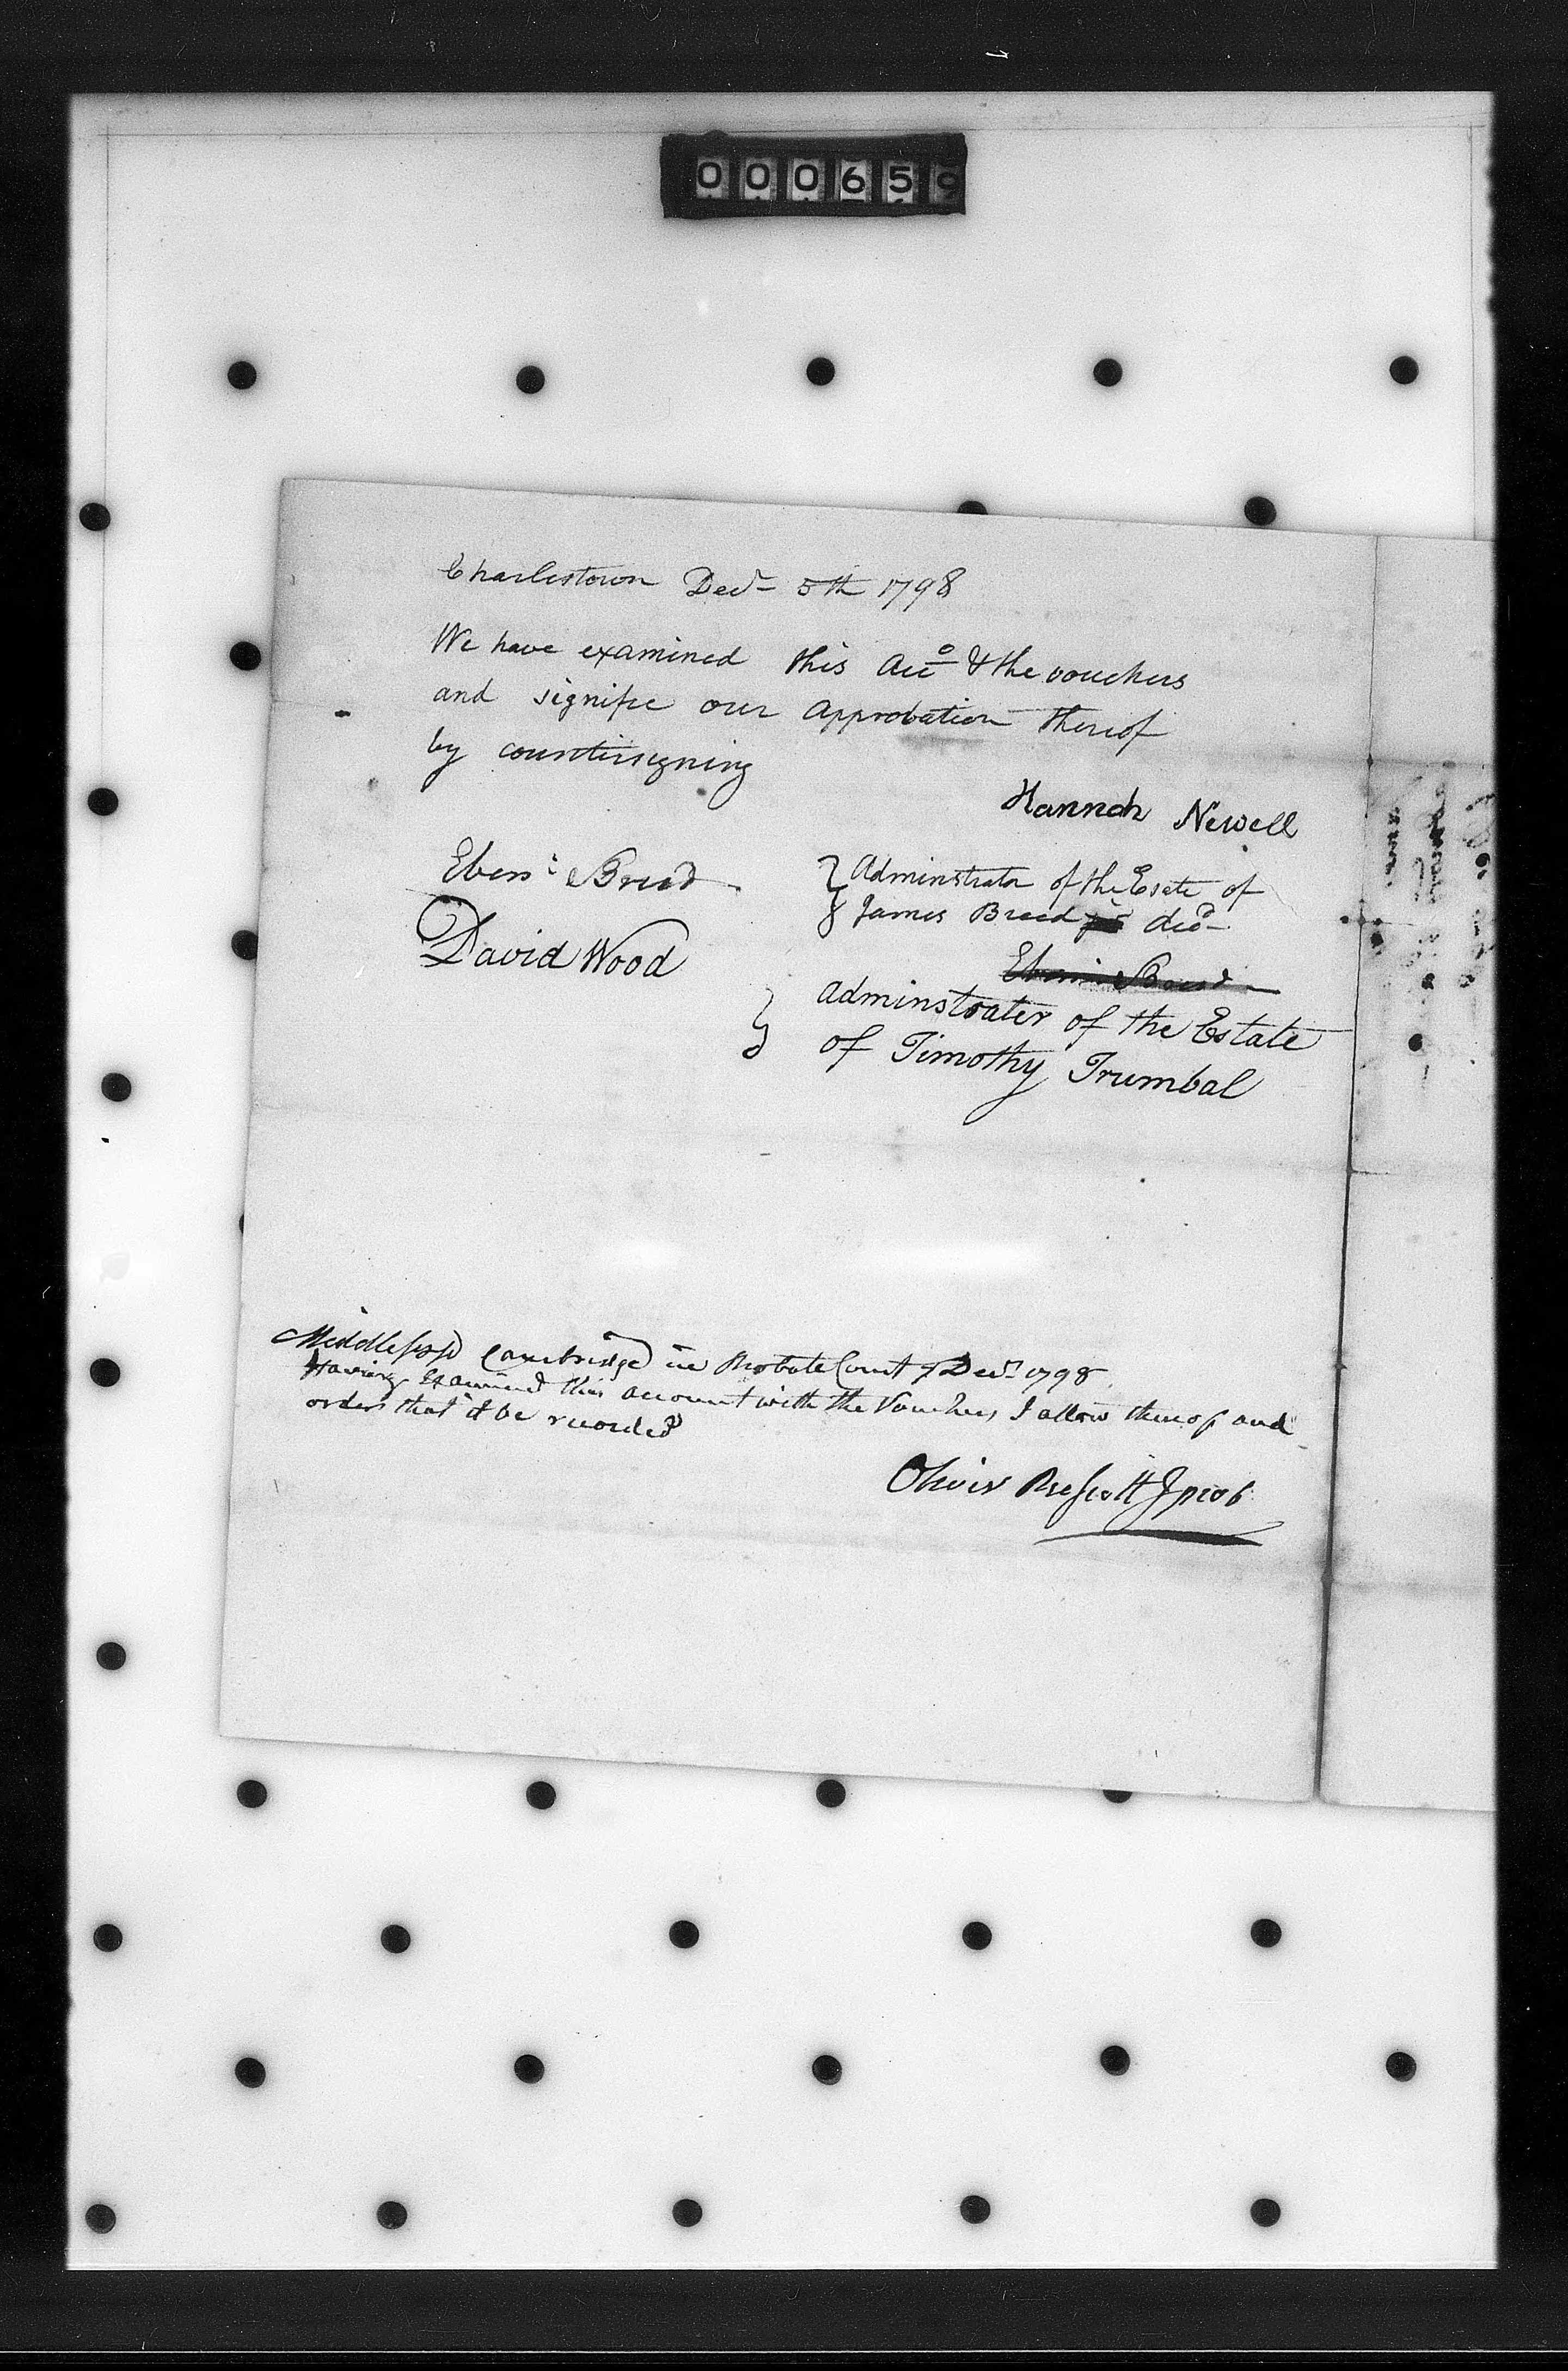 000659
Charlestown Decr 5th 1798
We have examined this Acco & the vouchers
and signifie our Approbation thereof
by countersigning
Hannah Newell
Ebenr Breed
} Adminstrator of the Esate of
& James Breed decd
David Wood
Ebenr Breed
} adminstrater of the Estate
of Timothy Trumbal
Middlesex Cambridge in Probate Court 7 Decr 1798
Having Examined this account with the Vouchers, I allow thereof and
order that it be recorded
Oliver Prescott J prob